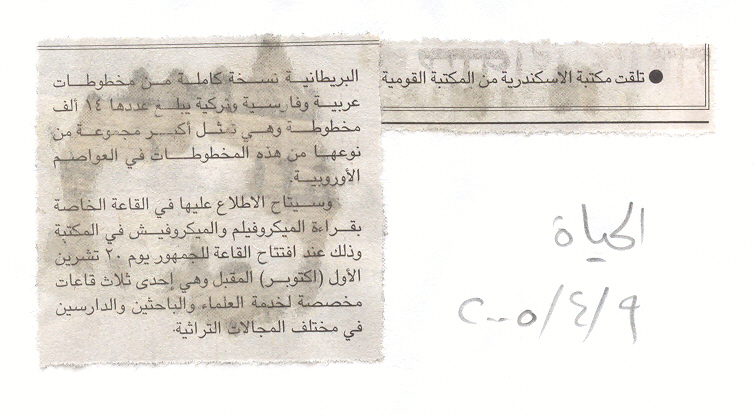 ● تلقت مكتبة الاسكندرية من المكتبة القومية
البريطانية نسخة كاملة من مخطوطات
عربية وفارسية وتركية يبلغ عددها ١٤ ألف
مخطوطة وهي تمثل أكبر مجموعة من
نوعها من هذه المخطوطات في العواصم
الأوروبية.
وسيتاح الاطلاع عليها في القاعة الخاصة
بقراءة الميكروفيلم والميكروفيش في المكتبة
وذلك عند افتتاح القاعة للجمهور يوم ٢٠ تشرين
الأول (اكتوبر) المقبل وهي إحدى ثلاث قاعات
مخصصة لخدمة العلماء والباحثين والدارسين
في مختلف المجالات التراثية.
الحياة
٢٠٠٥/٤/٩